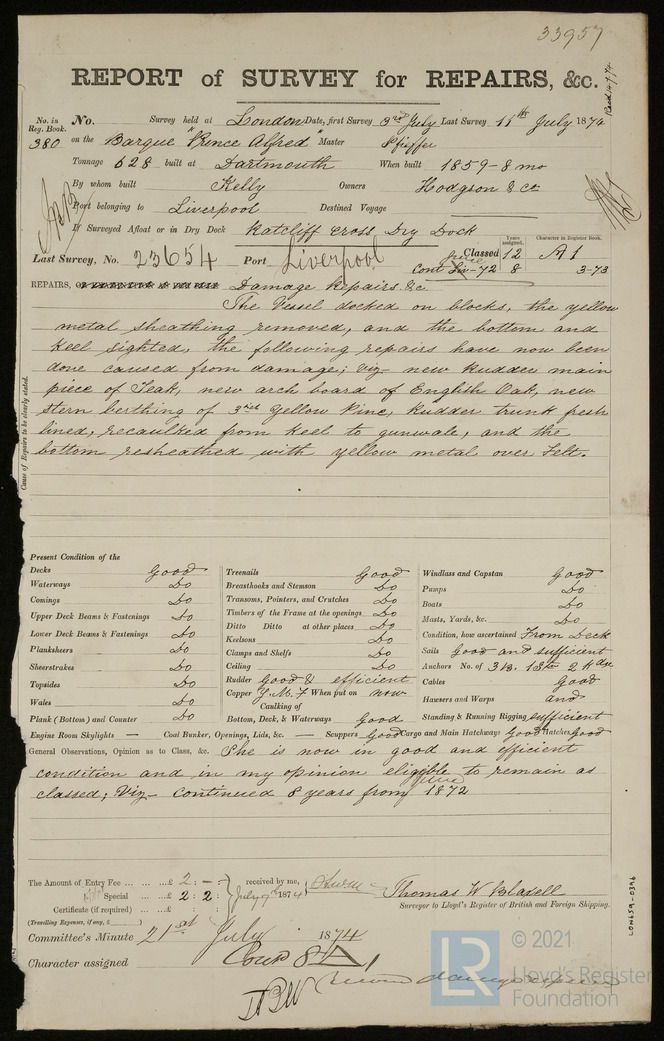 33957
REPORT of SURVEY for REPAIRS, &c.
Recd 14/7/74
No. in Reg. Book. No. Survey held at London Date, first Survey 3rd July Last Survey 11th July 1874
380 on the Barque "Prince Alfred" Master Pfeiffer
Tonnage 628 built at Dartmouth When built 1859-8 mo
By whom built Kelly Owners Hodgson & Co
Port belonging to Liverpool Destined Voyage
If Surveyed Afloat or in Dry Dock Ratcliff Cross Dry Dock
Years assigned. Character in Register Book.
Last Survey, No. 23654 Port Liverpool Classed 12 A 1
Cont -72 8 3-73
REPAIRS, Damage Repairs &c
The Vessel docked on blocks, the yellow
metal sheathing removed, and the bottom and
keel sighted, the following repairs have now been
done caused from damage; viz- new Rudder main
piece of Teak, new arch board of English Oak, new
stern berthing of 3 inch Yellow Pine, Rudder trunk fresh
lined, recaulked from keel to gunwale, and the
bottom resheathed with yellow metal over Felt.
Cause of Repairs to be clearly stated.
Present Condition of the
Decks Good
Waterways Do
Comings Do
Upper Deck Beams & Fastenings Do
Lower Deck Beams & Fastenings Do
Planksheers Do
Sheerstrakes Do
Topsides Do
Wales Do
Plank (Bottom) and Counter Do
Treenails Good
Breasthooks and Stemson Do
Transoms, Pointers, and Crutches Do
Timbers of the Frame at the openings Do
Ditto Ditto at other places Do
Keelsons Do
Clamps and Shelfs Do
Ceiling Do
Rudder Good & efficient
Copper Y.M.F When put on now
Caulking of
Bottom, Deck, & Waterways Good
Windlass and Capstan Good
Pumps Do
Boats Do
Masts, Yards, &c. Do
Condition, how ascertained From Deck
Sails Good and sufficient
Anchors No. of 3 B. 1 St. 2 Kdge
Cables Good
Hawsers and Warps and
Standing & Running Rigging sufficient
Engine Room Skylights — Coal Bunker, Openings, Lids, &c. — Scuppers Good Cargo and Main Hatchways Good Hatches Good
General Observations, Opinion as to Class, &c. She is now in good and efficient
condition and in my opinion eligible to remain as
classed; Viz- Continued 8 years from June 1872
The Amount of Entry Fee £ 2 : - : received by me,
Special £ 2 : 2 : July 1874
Certificate (if required) £
(Travelling Expenses, if any, £ )
Thomas W Blaxell
Surveyor to Lloyd's Register of British and Foreign Shipping.
Committee's Minute 21st July 1874
Character assigned Cont 8 A 1
LON659-0396
LR
© 2021
Lloyd's Register
Foundation